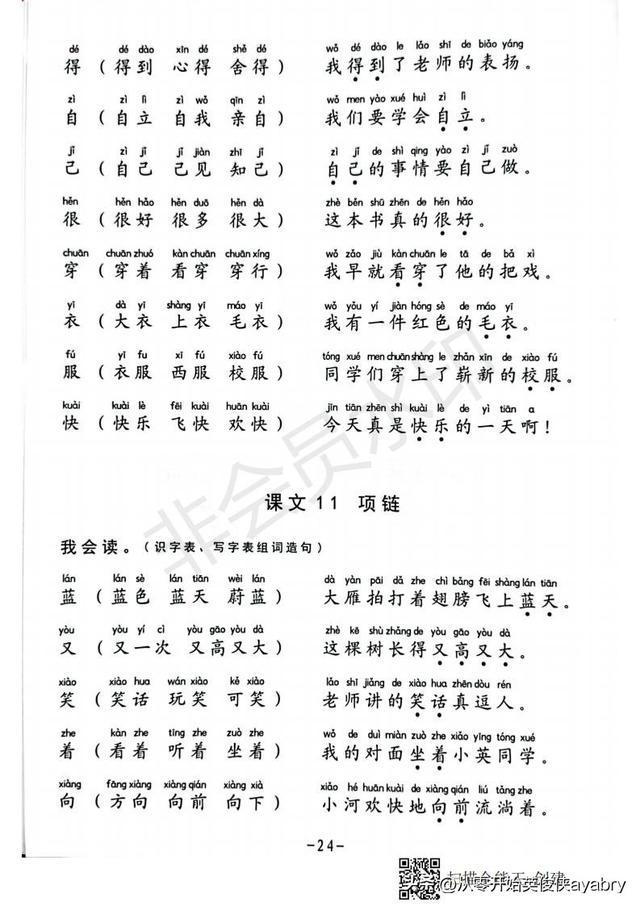 dé dé dào xīn dé shě dé wǒ dé dào le lǎo shī de biǎo yáng
得（得到 心得 舍得） 我得到了老师的表扬。
zì zì lì zì wǒ qīn zì wǒ men yào xué huì zì lì
自（自立 自我 亲自） 我们要学会自立。
jǐ zì jǐ jǐ jiàn zhī jǐ zì jǐ de shì qing yào zì jǐ zuò
己（自己 己见 知己） 自己的事情要自己做。
hěn hěn hǎo hěn duō hěn dà zhè běn shū zhēn de hěn hǎo
很（很好 很多 很大） 这本书真的很好。
chuān chuān zhuó kàn chuān chuān xíng wǒ zǎo jiù kàn chuān le tā de bǎ xì
穿（穿着 看穿 穿行） 我早就看穿了他的把戏。
yī dà yī shàng yī máo yī wǒ yǒu yí jiàn hóng sè de máo yī
衣（大衣 上衣 毛衣） 我有一件红色的毛衣。
fú yī fu xī fú xiào fú tóng xué men chuān shàng le zhǎn xīn de xiào fú
服（衣服 西服 校服） 同学们穿上了崭新的校服。
kuài kuài lè fēi kuài huān kuài jīn tiān zhēn shì kuài lè de yì tiān a
快（快乐 飞快 欢快） 今天真是快乐的一天啊！
课文11 项链
我会读。（识字表、写字表组词造句）
lán lán sè lán tiān wèi lán dà yàn pāi dǎ zhe chì bǎng fēi shàng lán tiān
蓝（蓝色 蓝天 蔚蓝） 大雁拍打着翅膀飞上蓝天。
yòu yòu yí cì yòu gāo yòu dà zhè kē shù zhǎng de yòu gāo yòu dà
又（又一次 又高又大） 这棵树长得又高又大。
xiào xiào hua wán xiào kě xiào lǎo shī jiǎng de xiào hua zhēn dòu rén
笑（笑话 玩笑 可笑） 老师讲的笑话真逗人。
zhe kàn zhe tīng zhe zuò zhe wǒ de duì miàn zuò zhe xiǎo yīng tóng xué
着（看着 听着 坐着） 我的对面坐着小英同学。
xiàng fāng xiàng xiàng qián xiàng xià xiǎo hé huān kuài de xiàng qián liú tǎng zhe
向（方向 向前 向下） 小河欢快地向前流淌着。
-24-
非会员水印
@从零开始英俊侠ayabry